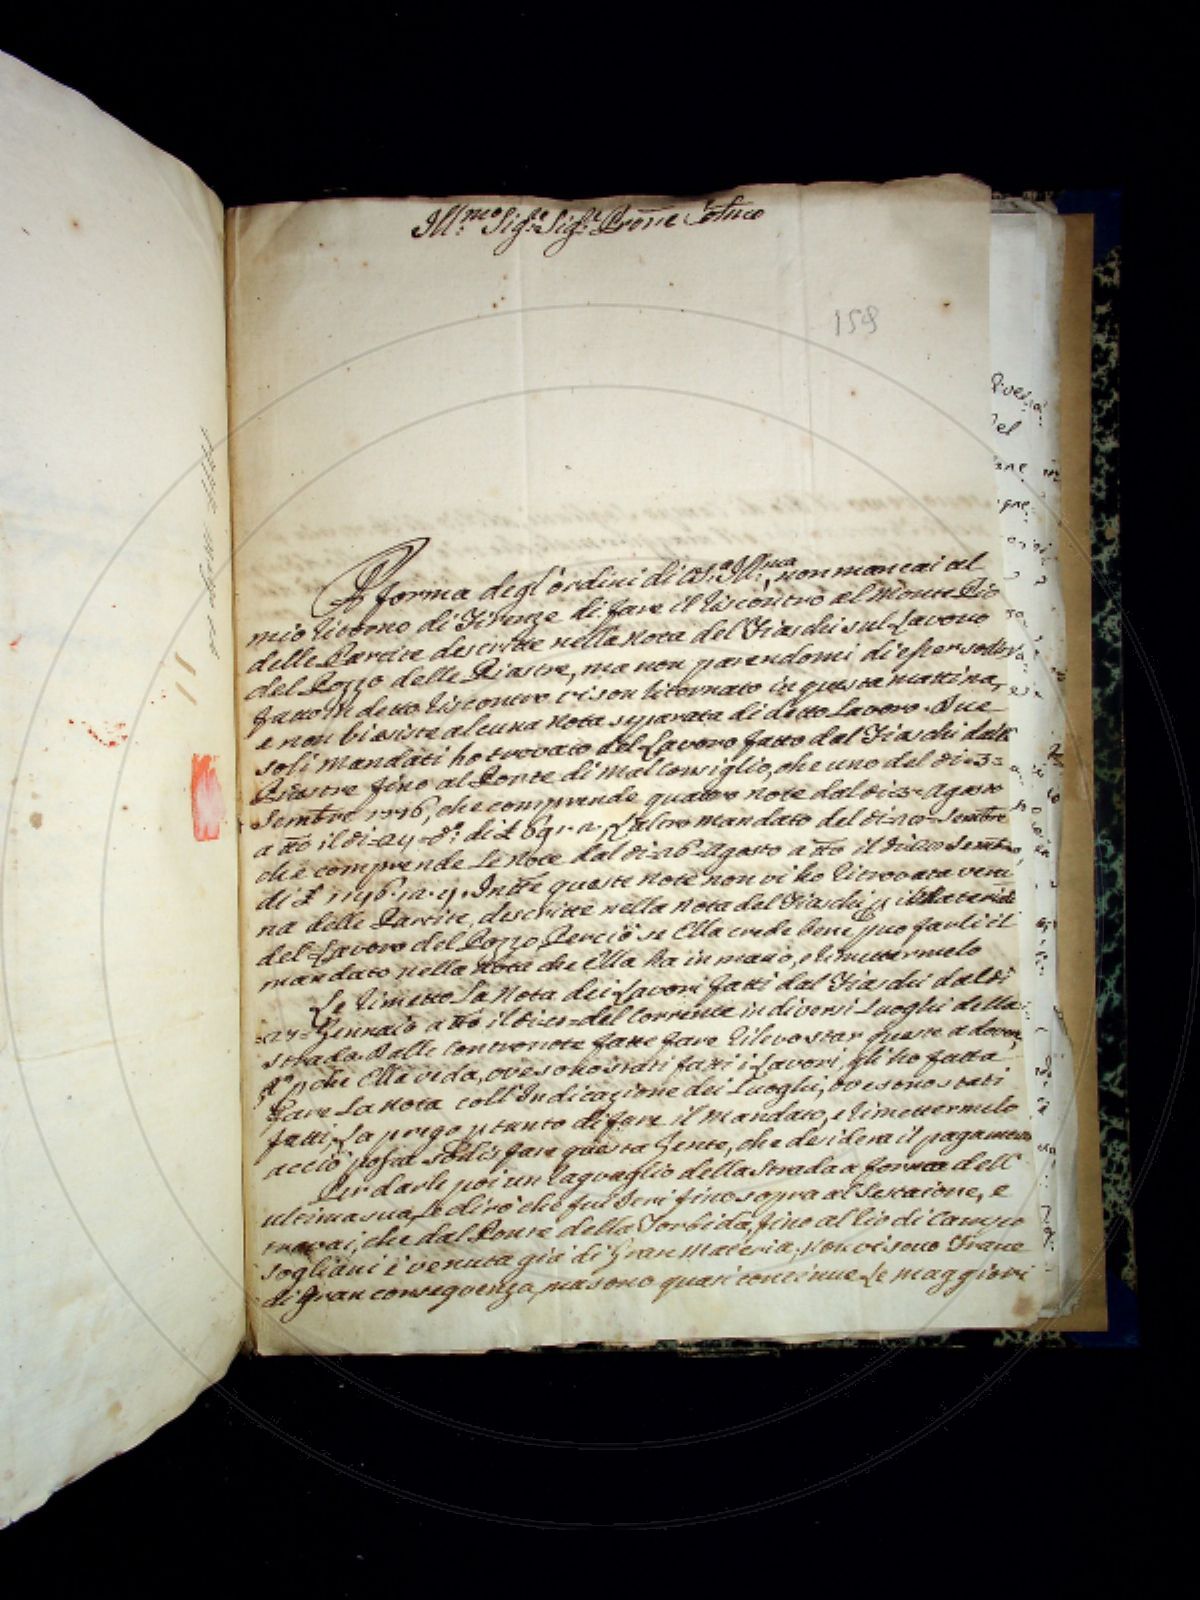 Ill:mo Sig:re Sig:re Prone Colmo
158
A forma degl'ordini di VS.a Ill:ma, non mancai al
mio ritorno di Firenze di fare il riscontro al Monte Pio
delle Partite descritte nella Nota del Fiaschi sul Lavoro
del Pozzo delle Piastre, ma non parendomi di esser sodisf
fatto in detto riscontro vi son ritornato in questa mattina,
e non vi esiste alcuna nota separata di detto Lavoro. Due
soli mandati ho trovato del Lavoro fatto dal Fiaschi dalle
Piastre fino al Ponte di mal Consiglio, che uno del di =3=
Sembre 1776, che comprende quattro note dal di =3= Agosto
a tto il di =24= d:o di £ 691.2., l'altro mandato del di =20= Sembre
che comprende Le Note dal di =26= Agosto a tto il di =20 Sembre,
di £ 1176.12.4. In tte queste note non vi ho ritrovata veru
na delle Partite, descritte nella Nota del Fiaschi p il Materiale
del Lavoro del Pozzo. Perciò se Ella crede bene può farli il
mandato nella Nota che Ella ha in mano, e rimettermelo
Le rimetto La Nota dei Lavori fatti dal Fiaschi dal di
=24= Gennaio a tto il di =10= del Corrente in diversi Luoghi della
Strada. Dalle Contronote fatte fare rilevo star queste a dovere,
p che Ella veda, ove sono stati fatti i Lavori, gli ho fatta
Fare La Nota coll'Indicazione dei Luoghi, ove sono stati
fatti, La prego ptanto di fare il Mandato, e rimettermelo
acciò possa sodisfare questa Gente, che desidera il pagamento
Per darle poi un ragguaglio della Strada a forma dell'
ultima sua, Le dirò che fui Ieri fino sopra al Sestaione, e
trovai, che dal Ponte della Torbida, fino al Rio di Campo
sogliani è venuta già di Gran Materia, Non vi sono Frane
di Gran conseguenza, ma sono quasi continue. Le maggiori